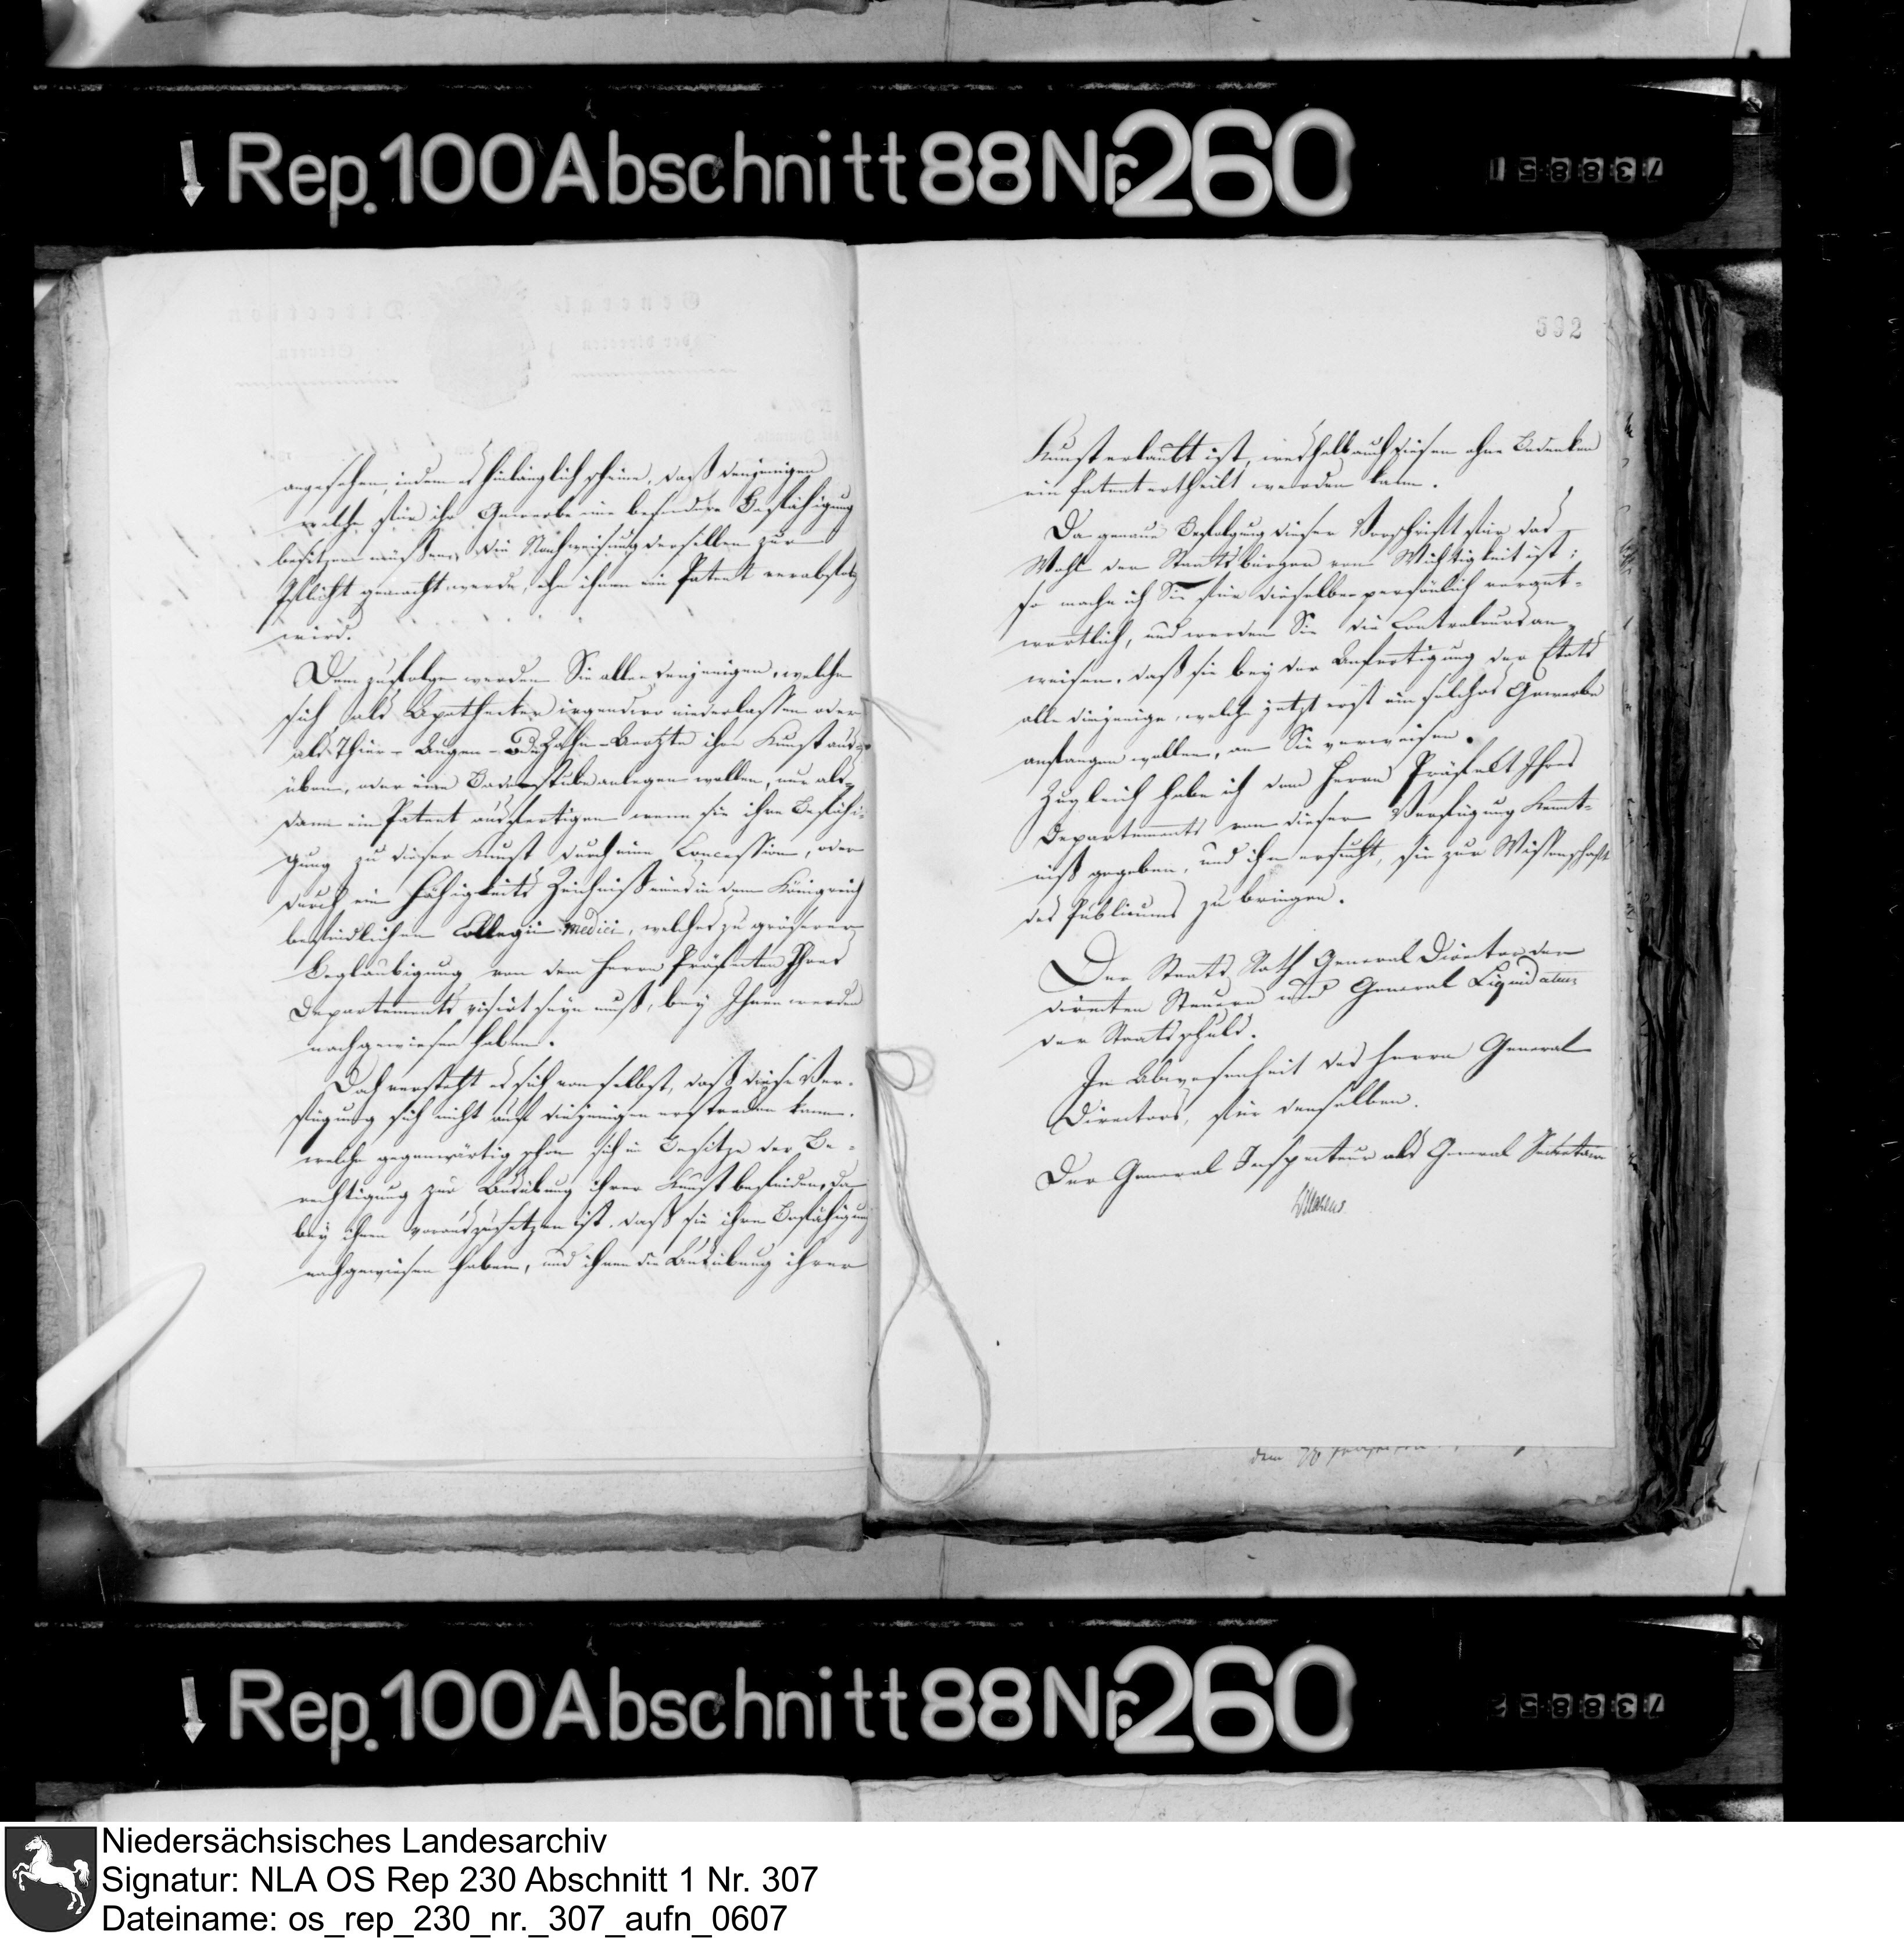 Rep. 100 Abschnitt 88 Nr. 260
73885 1
592
angesehen, indem es hinlänglich scheine, daß denjenigen
welche für ihr Gewerbe eine besondere Befähigung
besitzen müßen, die Nachweisung derselben zur
Pflicht gemacht werde, ehe ihnen ein Patent verabfolgt
wird.
Dem zufolge werden Sie allen denjenigen, welche
sich als Apotheker irgendwo niederlassen oder
als Thier- Augen- oder Zahn-Aerzte ihre Kunst aus-
üben, oder eine Badestube anlegen wollen, nur als-
dann ein Patent ausfertigen wenn sie ihre Befähi-
gung zu dieser Kunst durch eine Concession, oder
durch ein Fähigkeits Zeichniß eines in dem Königreich
befindlichen Collegii medici, welches zu größerer
Beglaubigung von dem Herrn Präfecten Ihres
Departements visirt seyn muß, bey Ihnen werden
nachgewiesen haben.
Doch versteht es sich von selbst, daß diese Ver-
fügung sich nicht auf diejenigen erstrecken kann,
welche gegenwärtig schon sich im Besitze der Be-
rechtigung zur Ausübung ihrer Kunst befinden, da
bey ihnen vorauszusetzen ist, daß sie ihre Befähigung
nachgewiesen haben, und ihnen die Ausübung ihrer
Kunst erlaubt ist, weshalb auch diesen ohne Bedenken
ein Patent ertheilt werden kann.
Da genaue Befolgung dieser Vorschrift für das
Wohl der Staatsbürger von Wichtigkeit ist;
so mache ich Sie für dieselbe persönlich verant-
wortlich, und werden Sie die Controleurs an-
weisen, daß sie bey der Anfertigung der Etats
alle diejenige, welche jetzt erst ein solches Gewerbe
anfangen wollen, an Sie verweisen.
Zugleich habe ich dem Herrn Präfekt Ihres
Departements von dieser Verfügung Kennt-
niß gegeben, und ihn ersucht, sie zur Wissenschaft
des Publicums zu bringen.
Der Staats Rath General Director der
directen Steuern und General Liquidateur
der Staatsschuld.
In Abwesenheit des Herrn General
Directors, für denselben.
Der General Inspecteur als General Secretair
Rep. 100 Abschnitt 88 Nr. 260
73885 2
Niedersächsisches Landesarchiv
Signatur: NLA OS Rep 230 Abschnitt 1 Nr. 307
Dateiname: os_rep_230_nr._307_aufn_0607